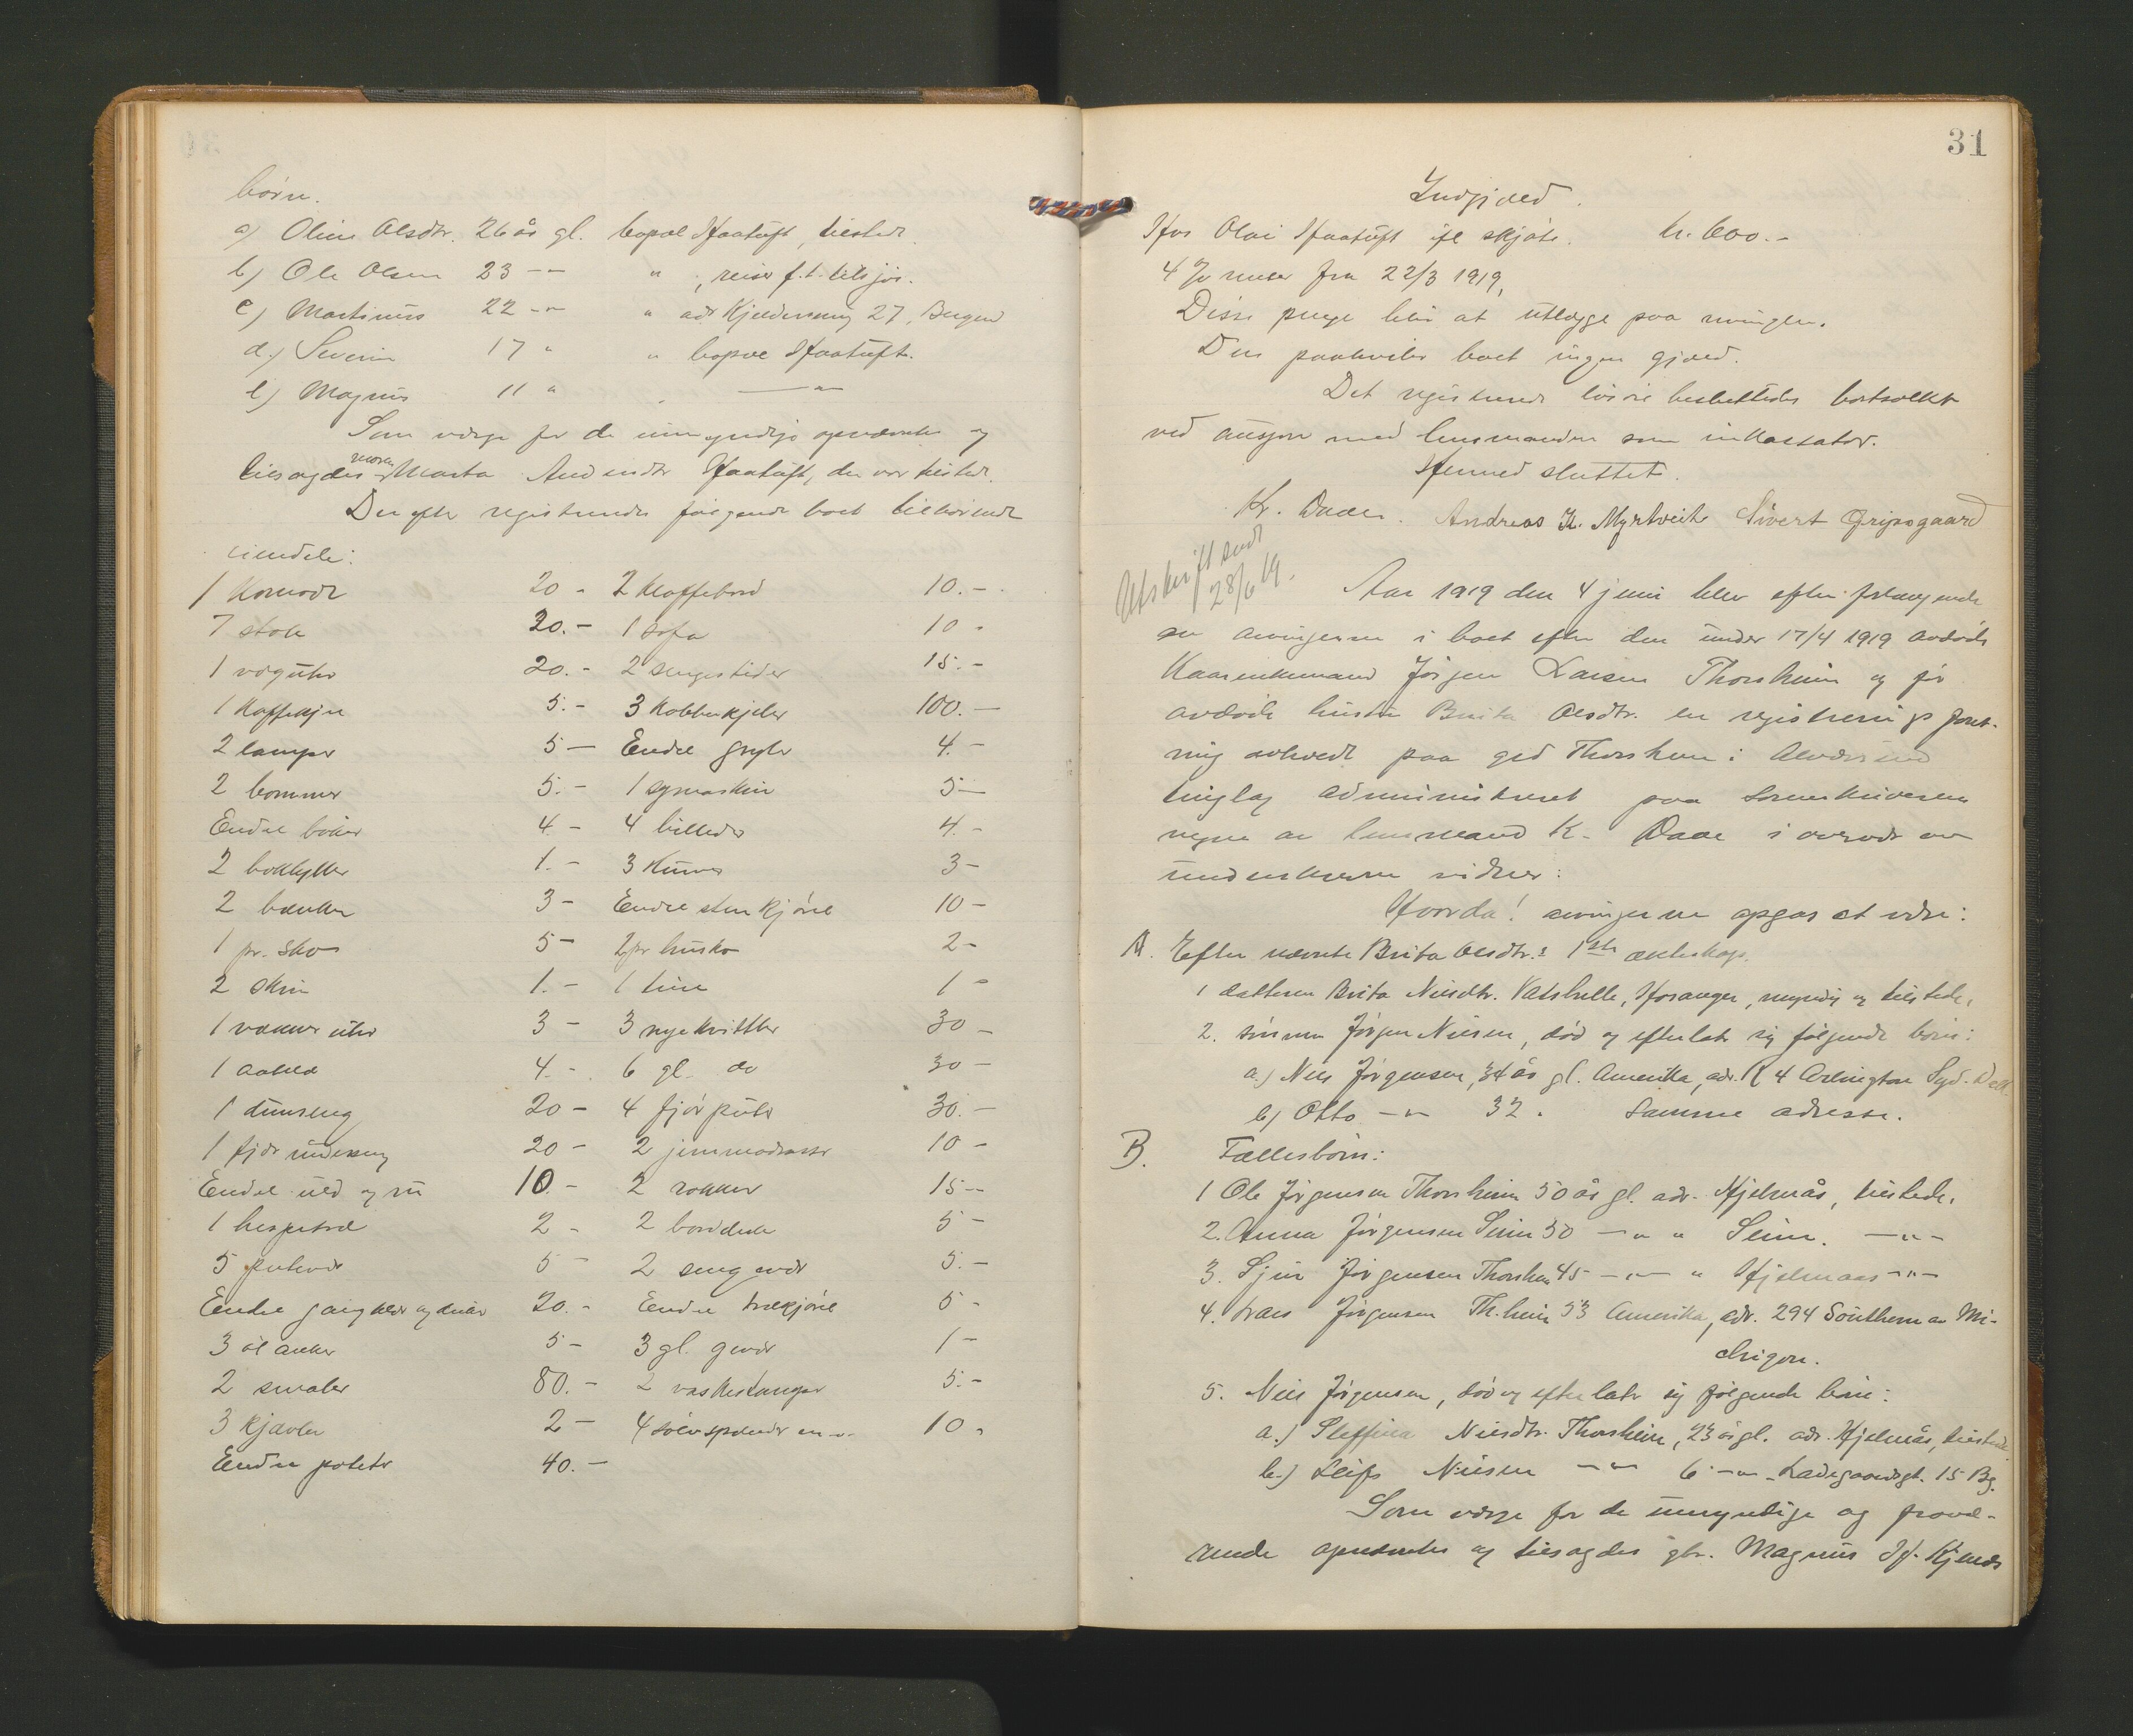 børn.
a) Oline Olsdtr. 26 år gl. bopæl Haatuft, tilstede.
b) Ole Olsen 23 -"- " , reiser f.t. tilsjøs.
c) Martinus 22 -"- " adr. 27, Bergen
d.) Severin 17 " " bopæl Haatuft.
e) Magnus 11 " -"-
Som verge for de umyndige opnævntes og
tilsagdes moren Marta Haatuft, der var tilstede.
Derefter registreredes følgende boet tilhørende
eiendele:
1 Komode 20 - 2 Kaffebord 10.-
7 stole 20.- 1 sofa 10 -
1 væguhr 20.- 2 sengesteder 15.-
1 Kaffekjel 5.- 3 Kobberkjeler 100.-
2 lamper 5 - Endel gryter 4.-
2 bommer 5.- 1 symaskin 5-
Endel bøker 4.- 4 billeder 4.-
2 bokhylller 1.- 3 Kurver 3-
2 bænker 3- Endel stenkjørel 10-
1 pr. sko 5- 2 pr husko 2-
2 skrin 1.- 1 tine 1-
1 vækkeruhr 3- 3 nye kvittler 30-
1 4.- 6 gl. do 30-
1 dunseng 20- 4 fjørputer 30.-
1 fjør underseng 20- 2 jernmadrasser 10-
Endel uld og 10.- 2 rokker 15--
1 hespetræ 2- 2 bordduker 5-
5 putevar 5- 2 seng 5.-
Endel gangklær og 20.- Endel trækjørel 5-
3 øl anker 5- 3 gl. 1-
2 smaler 80.- 2 5.-
3 kjævler 2- 4 sølvspænder m.v. 10.
Endel poteter 40.-
31
Indgjæld.
Hos Olai Haatuft ifl skjøte. kr. 600.-
4 % renter fra 22/3 1919,
Disse penge blir at utlægge paa arvingen.
Der paahviler boet ingen gjæld.
Det registrerede løsøre besluttedes bortsolgt
ved auksjon med lensmanden som inkassator.
Hermed sluttet.
Kr. Daae. Andreas K. Myrtveit Sivert Gripsgaard
Utskrift sendt
28/6 19.
Aar 1919 den 4 juni blev efter forlangende
av arvingerne i boet efter den under 17/4 1919 avdøde
Kaarenkemand Jørgen Larsen Thorsheim og før
avdøde hustru Brita Olsdtr. en registreringsforret-
ning avholdt paa grd Thorsheim i Alversund
tinglag administreret paa sorenskriverens
vegne av lensmand K. Daae i overvær av
underskrevne vidner:
Hvorda! arvingerne opgas at være:
A. Efter nævnte Brita Olsdtr.s 1ste ækteskap.
1 datteren Brita Nilsdtr. Vatshelle, Hosanger, myndig og tilstede.
2. sønnen Jørgen Nilsen, død og efterlatt sig følgende børn:
a.) Nils Jørgensen, 34 år gl. Amerika, adr. R 4 Arlington Syd. Dak.
b) Otto -"- 32 . Samme adresse.
B. Fællesbørn:
1 Ole Jørgensen Thorsheim 50 år gl. adr. Hjelmås, tilstede.
2. Anna Jørgensen Seim 50 -"- " Seim. -"-
3. Sjur Jørgensen Thorsheim 45 -"- " Hjelmaas -"-
4. Lars Jørgensen Th.heim 53 Amerika, adr. 294 Southern av Mi-
chigon.
5. Nils Jørgensen, død og efterlatt sig følgende børn:
a.) Steffina Nilsdtr. Thorsheim, 23 år gl. adr. Hjelmås, tilstede
b.) Leif Nilsen -"- 6 -"- Ladegaardsgt. 15 Bg.
Som verge for de umyndige og fravæ-
rende opnævntes og tilsagdes gbr. Magnus